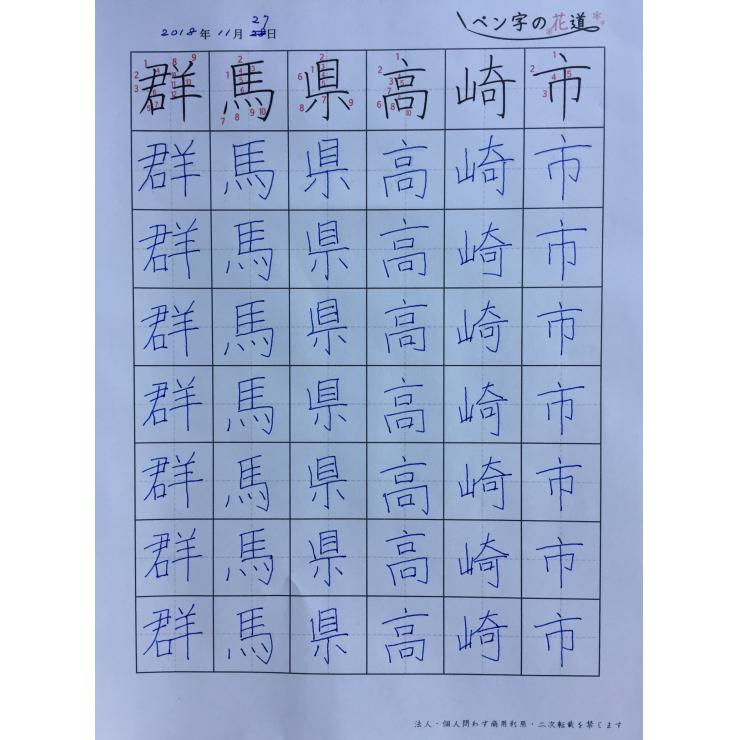 27
2018年11月28日
ペン字の花道
群馬県高崎市
群馬県高崎市
群馬県高崎市
群馬県高崎市
群馬県高崎市
群馬県高崎市
群馬県高崎市
群馬県高崎市
法人・個人問わず商用利用・二次転載を禁じます